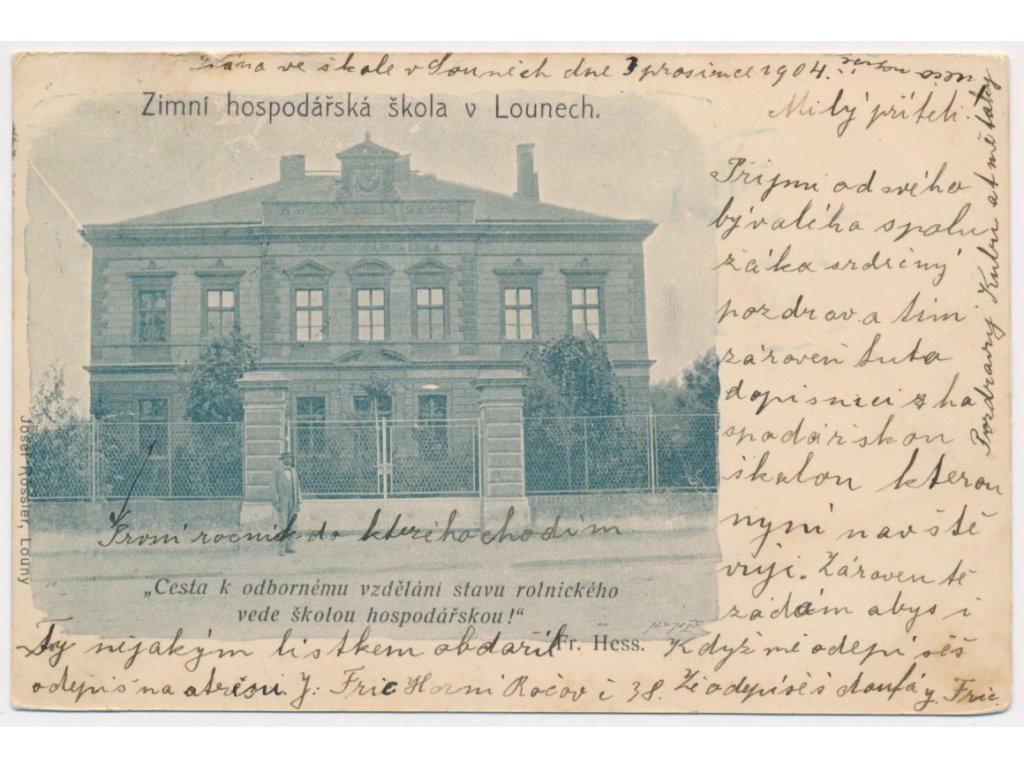 ve škole v Lounech dne 3 prosince 1904.
Zimní hospodářská škola v Lounech.
Milý příteli.
Prijmi od svého
byvalého spolu
žáka srdečný
pozdrav a tim
zároveň tuto
dopisnici z ho
spodářskou
školou kterou
nyní navště
vuji. Zároven tě
žádám abys i
Pozdravy Kubu at mě taky
Josef Rössler, Louny
První ročník do kterého chodim
„Cesta k odbornému vzdělání stavu rolnického
vede školou hospodářskou!“
Fr. Hess.
Ty nějakým listkem obdařil
Když mě odepiseš
odepiš na atresu. J: Fric Horní Ročov č 38. Že odepíšeš doufá J. Fric.